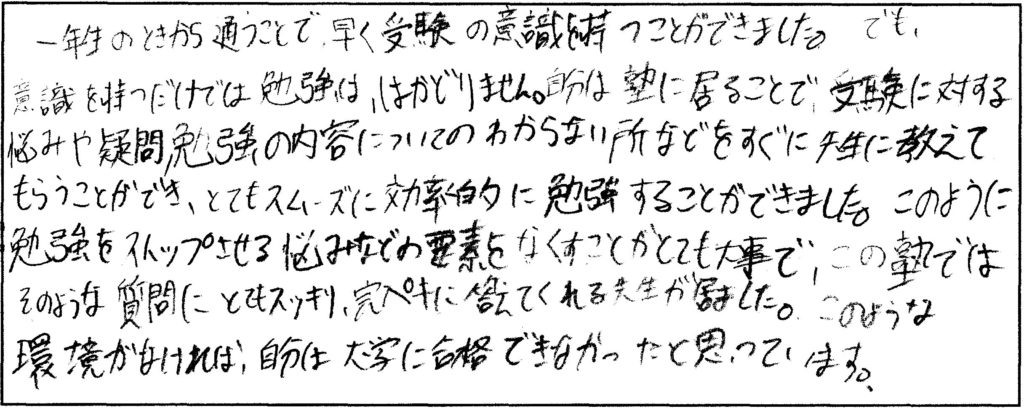 一年生のときから通うことで、早く受験の意識を持つことができました。でも、
意識を持つだけでは勉強は、はかどりません。自分は塾に居ることで、受験に対する
悩みや疑問、勉強の内容についてのわからない所などをすぐに先生に教えて
もらうことができ、とてもスムーズに効率的に勉強することができました。このように
勉強をストップさせる悩みなどの要素をなくすことがとても大事で、この塾では
そのような質問にとてもスッキリ、完ペキに答えてくれる先生が居ました。このような
環境がなければ、自分は大学に合格できなかったと思っています。